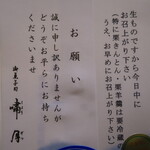 生ものですから今日中に
お召上がり下さい
(特に栗きんとん・栗羊羹は要冷蔵の
うえ、お早めにお召上がり下さい)
お願い
誠に申し訳ありませんが
どうぞお平らにお持ち
くださいませ
御菓子司